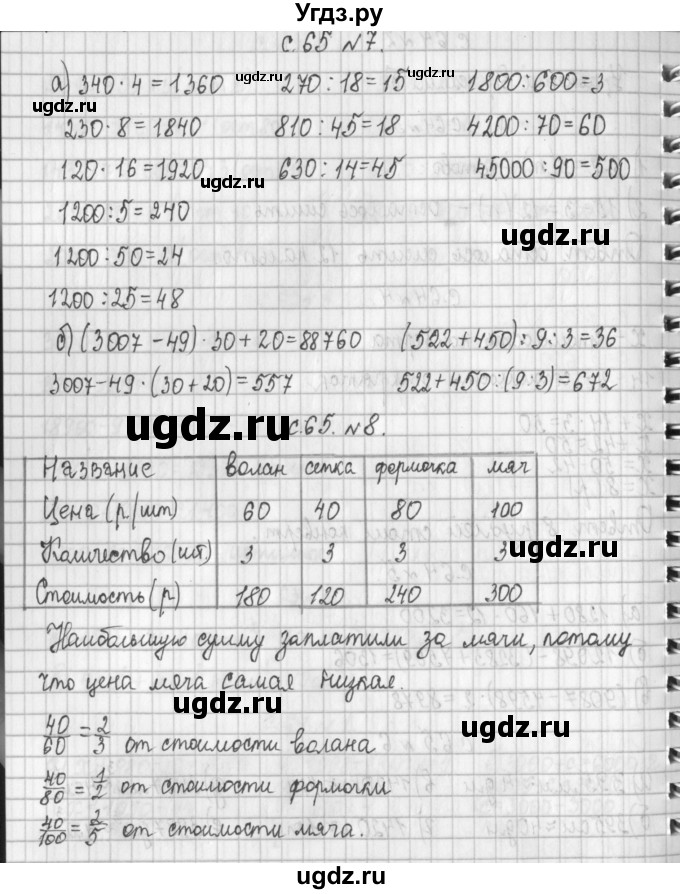 Угдз.ру
с.65 №7.
а) 340 · 4 = 1360 270 : 18 = 15 1800 : 600 = 3
230 · 8 = 1840 810 : 45 = 18 4200 : 70 = 60
120 · 16 = 1920 630 : 14 = 45 45000 : 90 = 500
1200 : 5 = 240
1200 : 50 = 24
1200 : 25 = 48
б) (3007 - 49) · 30 + 20 = 88760 (522 + 450) : 9 : 3 = 36
3007 - 49 · (30 + 20) = 557 522 + 450 : (9 : 3) = 672
с.65. №8.
Название волан сетка формочка мяч
Цена (р/шт) 60 40 80 100
Количество (шт.) 3 3 3 3
Стоимость (р) 180 120 240 300
Наибольшую сумму заплатили за мячи, потому
что цена мяча самая низкая.
40/60 = 2/3 от стоимости волана
40/80 = 1/2 от стоимости формочки
40/100 = 2/5 от стоимости мяча.
ugdz.ru
ugdz.ru
ugdz.ru
ugdz.ru
ugdz.ru
ugdz.ru
ugdz.ru
ugdz.ru
ugdz.ru
ugdz.ru
ugdz.ru
ugdz.ru
ugdz.ru